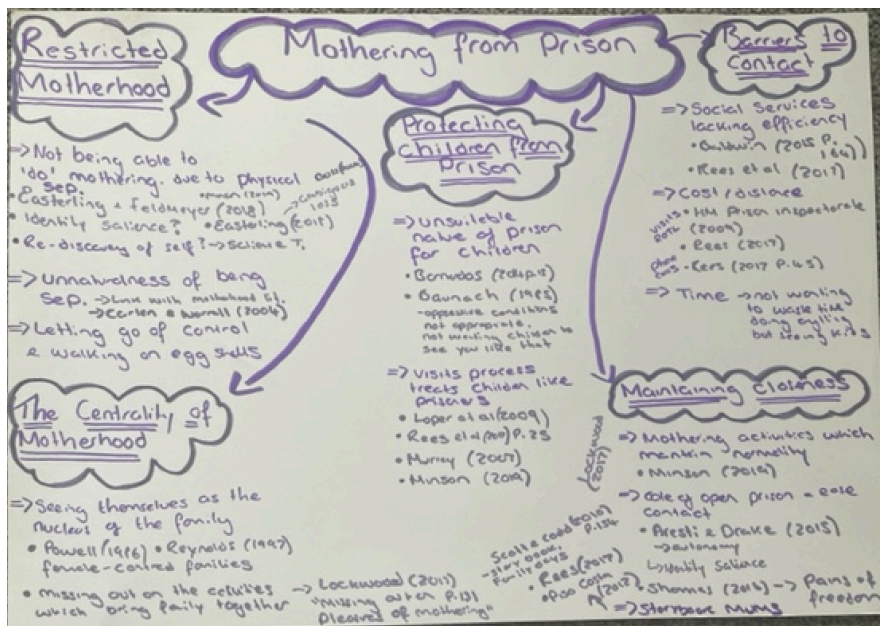 Mothering from Prison
Restricted
Motherhood
=> Not being able to
'do' mothering. due to physical
sep.
• Easterling & Feldmeyer (2018)
• Identity salience? • Easterling (2018)
• Re-discovery of self?
=> Unnaturalness of being
sep. → Link with motherhood
→ Carlen & Worrall (2004)
=> Letting go of control
& walking on egg shells
The Centrality of
Motherhood
=> Seeing themselves as the
nucleus of the family
• Powell (1996) • Reynolds (1997)
families
• missing out on the
which bring family together
→ Lockwood (2017)
P.131
of mothering"
Protecting
children from
Prison
=> Unsuitable
nature of prison
for children
• Baunach (1985)
- oppressive conditions
not appropriate.
not wanting children to
see you like that
=> Visits process
treats children like
prisoners
• Loper et al (2009)
• Rees et al (2017) P.25
• Murray (2007)
• Minson (2019)
Barriers to
Contact
=> Social Services
lacking efficiency
• Baldwin (2015 P.
164)
• Rees et al (2017)
=> Cost/distance
visits
• HM Prison inspectorate
(2009)
• Rees (2017)
phone
calls
(2017 P.45)
=> Time → not wanting
to waste time
doing anything
but seeing kids
Maintaining Closeness
=> Mothering activities which
maintain normality
• Minson (2019)
=> Role of open prison - ease
contact
• Aresti & Drake (2015)
→ autonomy
↳ Identity Salience
→ Pains of
freedom
Lockwood
(2017)
P.154
- story book,
family days
• Rees (2017)
=> Storybook Mums